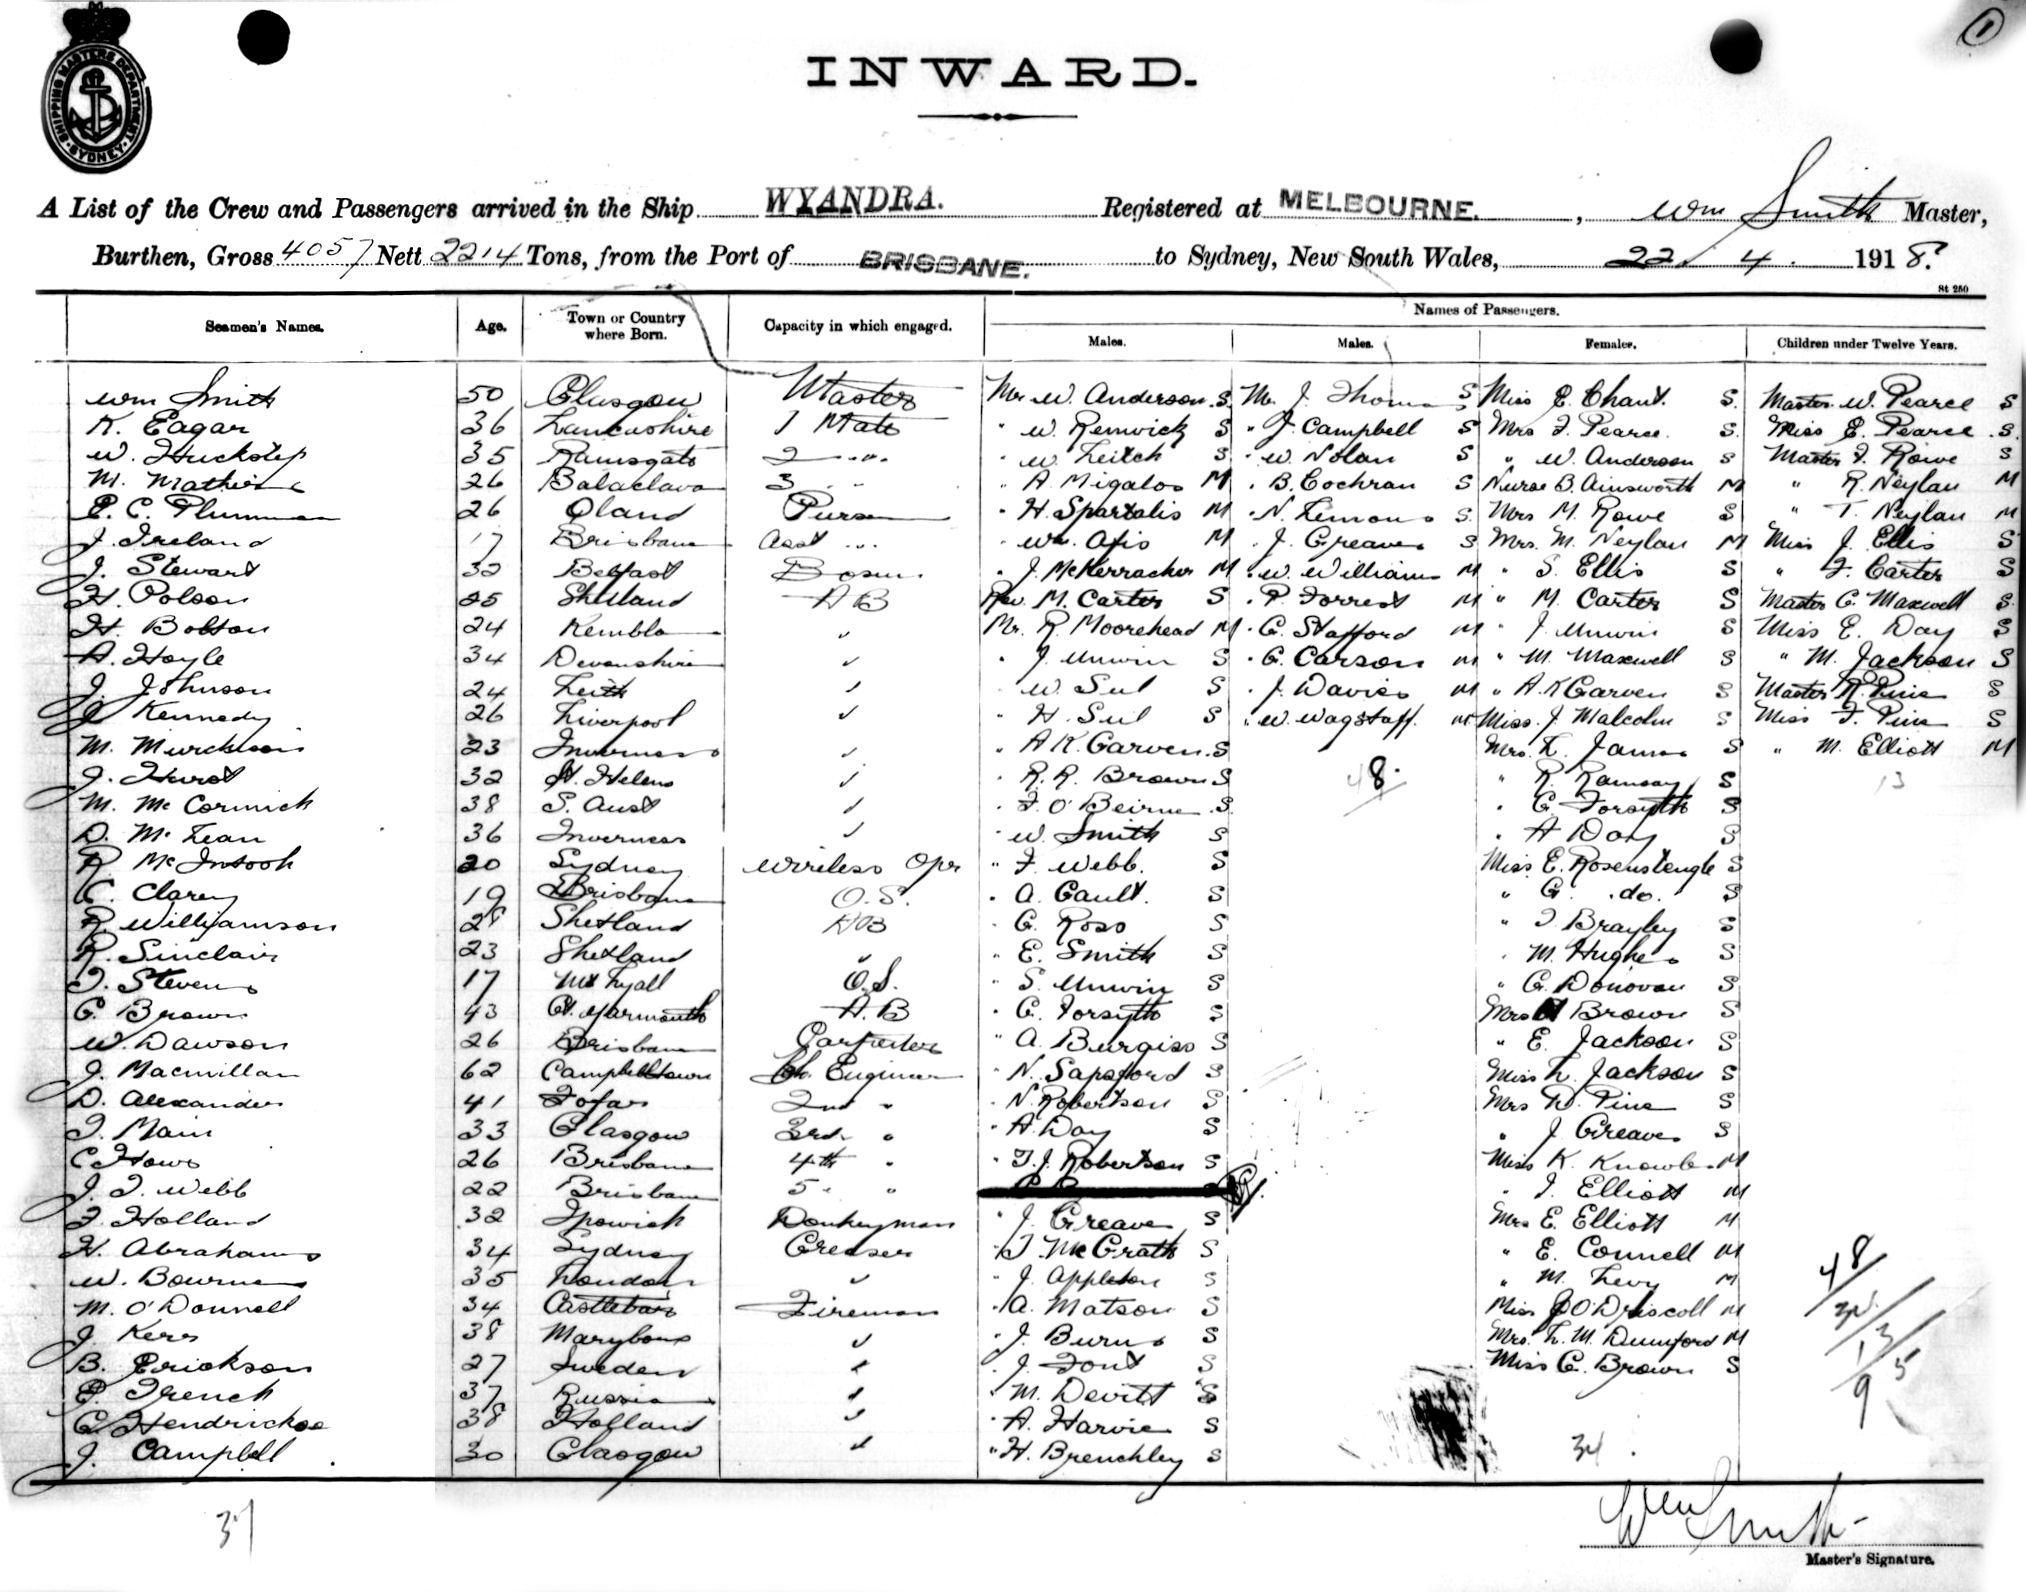 1
SHIPPING MASTERS DEPARTMENT SYDNEY
INWARD.
A List of the Crew and Passengers arrived in the Ship WYANDRA. Registered at MELBOURNE. , Wm Smith Master,
Burthen, Gross 4057 Nett 2214 Tons, from the Port of BRISBANE. to Sydney, New South Wales, 22 / 4 . 1918.
St 250
Seamen's Names. Age. Town or Country where Born. Capacity in which engaged. Names of Passengers.
Males. Males. Females. Children under Twelve Years.
Wm Smith 50 Glasgow Master Mr W. Anderson S. Mr J. S Miss E. Chant. S. Master W. Pearce S
K. Eagar 36 Lancashire 1 Mate " W. Renwick S " J. Campbell S Mrs F. Pearce. S. Miss E. Pearce S.
W. Huckstep 35 Ramsgate 2 " " W. Leitch S. " W. Nolan S " W. Anderson S Master F. Rowe S
M. 26 Balaclava 3 " " A Migalos M " B. Cochran S Nurse B. Ainsworth M " R. Neylan M
E. C. Plummer 26 Qland Purser " H. Spartalis M " N. S. Mrs M. Rowe S " T. Neylan M
J. Ireland 17 Brisbane Asst " " Wm. M " J. Greaves S Mrs. M. Neylan M Miss J. Ellis S
J. Stewart 32 Belfast Bosun " J. McKerracher M " W. Williams M " S. Ellis S " F. Carter S
H. Polson 25 Shetland AB Rev. M. Carter S " P. Forrest M " M. Carter S Master C. Maxwell S.
H. Bolton 24 Kembla " Mr. R. Moorehead M " C. Stafford M " J. Unwin S Miss E. Day S
A. Hoyle 34 Devonshire " " J. Unwin S " C. Carson M " M. Maxwell S " M. Jackson S
J. Johnson 24 Leith " " W. S " J. Davies M " A. K Garven S Master R. Pine S
J. Kennedy 26 Liverpool " " H. S " W. Wagstaff. M Miss. J. Malcolm S Miss F. Pine S
M. Murchison 23 Inverness " " A K. Garven. S Mrs. L. James S " M. Elliott M
J. Hurst 32 St. Helens " " R. R. Brown S 48 " R. Ramsay S 13
M. McCormick 38 S. Aust " " F. O'Beirne S " C. Forsyth S
D. McLean 36 Inverness " " W. Smith S " A Day S
R McIntosh 20 Sydney Wireless Opr " F. Webb. S Miss E. Rosenstengle S
C. Clarey 19 Brisbane O.S. " A. Gault. S " G. do. S
R. Williamson 28 Shetland AB " G. Ross S " I Brayley S
R. Sinclair 23 Shetland " " E. Smith S " M. Hughes S
T. Stevens 17 Mt Lyall O.S. " S. Unwin S " C. Donovan S
C. Brown 43 Gt. Yarmouth A.B " C. Forsyth S Mrs Brown S
W. Dawson 26 Brisbane Carpenter " A. Burgiss S " E. Jackson S
J. Macmillan 62 Campbelltown Ch. Engineer " N. Sapsford S Miss L. Jackson S
D. Alexander 41 Fofar 2nd " " N. Robertson S Mrs W. Pine S
T. Main 33 Glasgow 3rd " " A. Day S " J Greaves S
C. Howe 26 Brisbane 4th " " T. J. Robertson S Miss K. Knowles M
J. T. Webb 22 Brisbane 5 " " " I. Elliott M
F. Holland 32 Ipswich Donkeyman " J. Greaves S Mrs E. Elliott M
H. Abrahams 34 Sydney Greaser " T. McGrath S " E. Connell M
W. Bourne 35 London " " J. Appleton S " M. Levy M 48
M. O'Donnell 34 Castlebar Fireman " A. Matson S Miss J O'Driscoll M 34
J. Kerr 38 Maryboro " " J. Burns S Mrs. L. M. Dumford M 13
B. Erickson 27 Sweden " " J. Font S Miss C. Brown S
E. French 37 Russia " " M. Devitt S 95
C. Hendrickse 38 Holland " " A. Harvie S
J. Campbell 30 Glasgow " " H. Brenchley S 34
37
Wm Smith
Master's Signature.